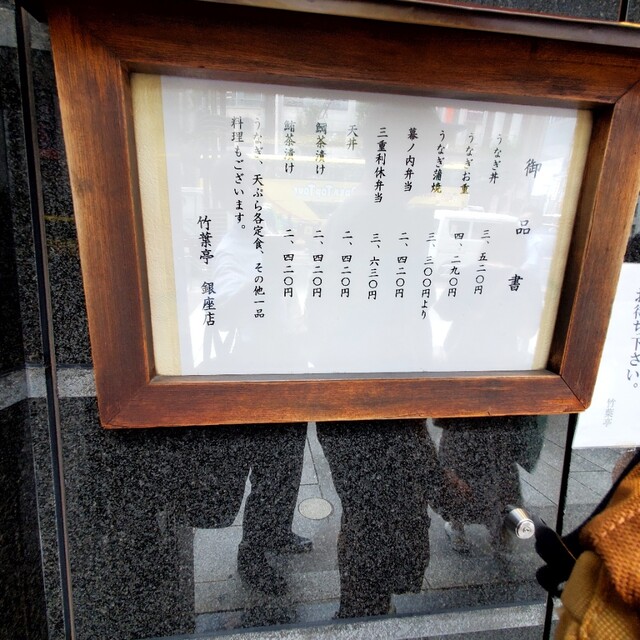 御品書
うなぎ丼 三、五二〇円
うなぎお重 四、二九〇円
うなぎ蒲焼 三、三〇〇円より
幕ノ内弁当 二、四二〇円
三重利休弁当 三、六三〇円
天丼 二、四二〇円
鯛茶漬け 二、四二〇円
鮪茶漬け 二、四二〇円
うなぎ、天ぷら各定食、その他一品
料理もございます。
竹葉亭 銀座店
お待ち下さい。
竹葉亭